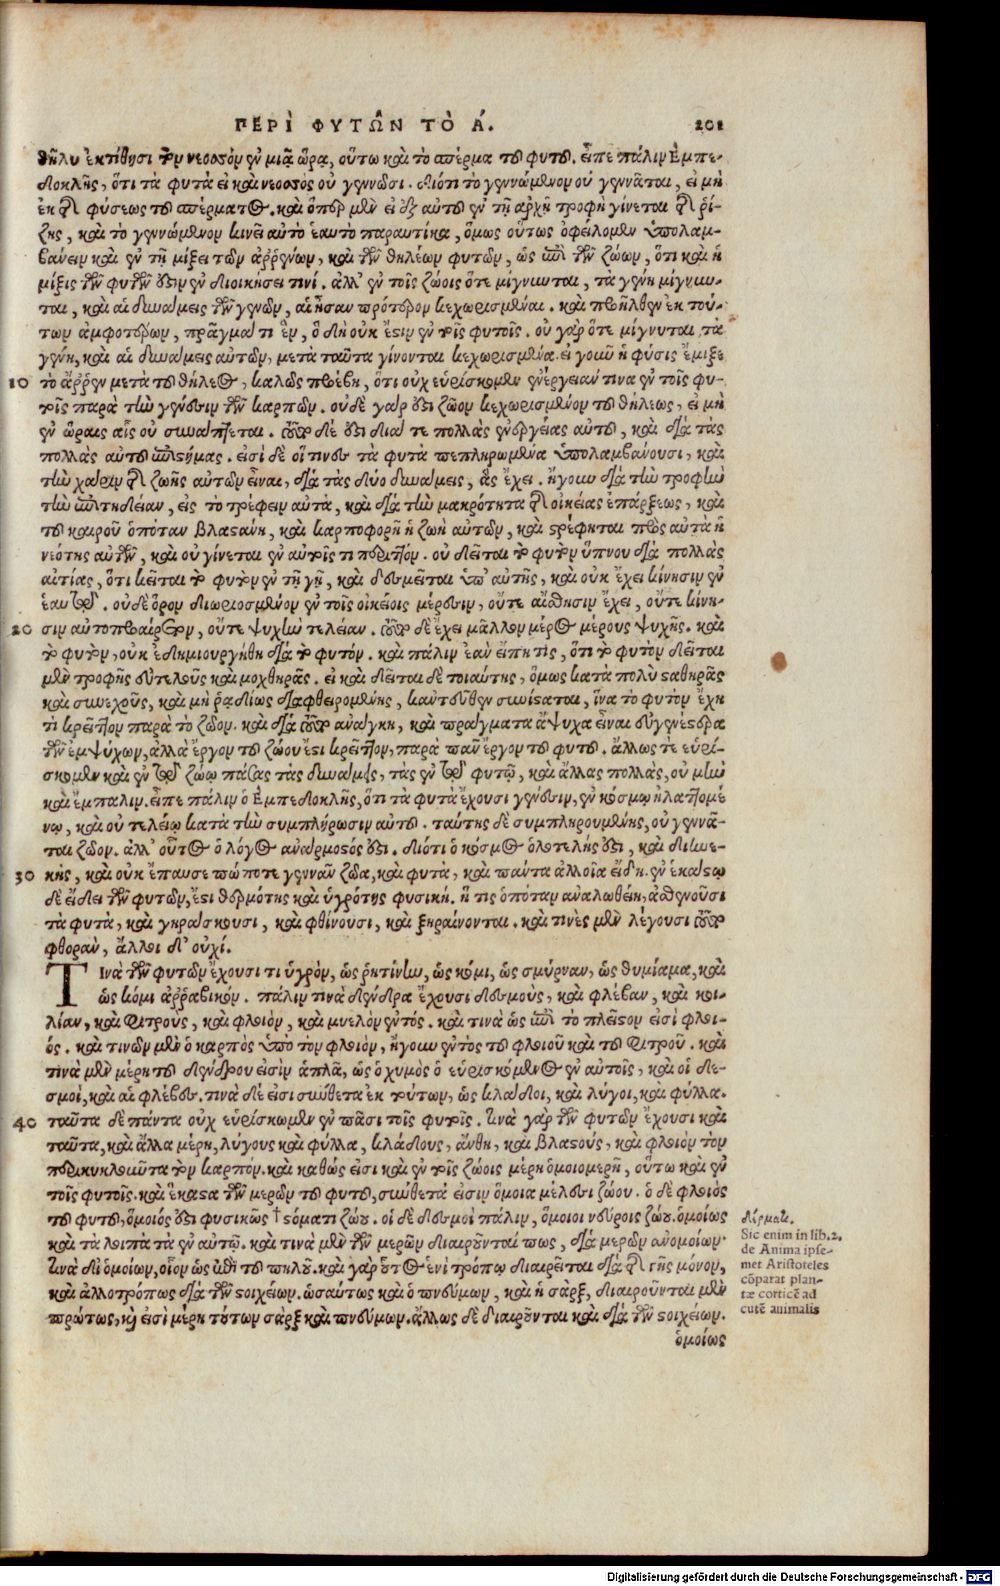 ΠΕΡῚ ΦΥΤΩ͂Ν ΤῸ Α. 201
θῆλυ ἐκτίθησι τὸν νεοσσὸν ἐν μιᾷ ὥρᾳ, οὕτω καὶ τὸ σπέρμα τοῦ φυτοῦ. εἶπε πάλιν Ἐμπε-
δοκλῆς, ὅτι τὰ φυτὰ εἰ καὶ νεοσσὸς οὐ γεννῶσι. διότι τὸ γεννώμενον οὐ γεννᾶται, εἰ μὴ
ἐκ τῆς φύσεως τοῦ σπέρματος. καὶ ὅπερ μὲν εἰ ἐξ αὐτοῦ ἐν τῇ ἀρχῇ τροφὴ γίνεται τῆς ῥί-
ζης, καὶ τὸ γεννώμενον κινεῖ αὐτὸ ἑαυτὸ παραυτίκα, ὅμως οὕτως ὀφείλομεν ὑπολαμ-
βάνειν καὶ ἐν τῇ μίξει τῶν ἀρρένων, καὶ τῶν θηλέων φυτῶν, ὡς ἐπὶ τῶν ζώων, ὅτι καὶ ἡ
μίξις τῶν φυτῶν ἐστὶν ἐν διοικήσει τινί. ἀλλ' ἐν τοῖς ζώοις ὅτε μίγνυνται, τὰ γένη μίγνυν-
ται, καὶ αἱ δυνάμεις τῶν γενῶν, αἳ ἦσαν πρότερον κεχωρισμέναι. καὶ προῆλθεν ἐκ τού-
των ἀμφοτέρων, πρᾶγμά τι ἓν, ὃ δὴ οὐκ ἔστιν ἐν τοῖς φυτοῖς. οὐ γὰρ ὅτε μίγνυται τὰ
γένη, καὶ αἱ δυνάμεις αὐτῶν, μετὰ ταῦτα γίνονται κεχωρισμέναι. εἰ γοῦν ἡ φύσις ἔμιξε
10 τὸ ἄρρεν μετὰ τοῦ θήλεος, καλῶς προέβη, ὅτι οὐχ εὑρίσκομεν ἐνέργειάν τινα ἐν τοῖς φυ-
τοῖς παρὰ τὴν γένεσιν τῶν καρπῶν. οὐδὲ γὰρ ἐστὶ ζῶον κεχωρισμένον τοῦ θήλεως, εἰ μὴ
ἐν ὥραις αἷς οὐ συνάπτεται. τοῦτο δὲ ἐστὶ διά τε πολλὰς ἐνεργείας αὐτοῦ, καὶ διὰ τὰς
πολλὰς αὐτοῦ ἐπιστήμας. εἰσὶ δὲ οἵτινες τὰ φυτὰ πεπληρωμένα ὑπολαμβάνουσι, καὶ
τὴν χάριν τῆς ζωῆς αὐτῶν εἶναι, διὰ τὰς δύο δυνάμεις, ἃς ἔχει. ἤγουν διὰ τὴν τροφὴν
τὴν ἐπιτηδείαν, εἰς τὸ τρέφειν αὐτὰ, καὶ διὰ τὴν μακρότητα τῆς οἰκείας ἐπάρξεως, καὶ
τοῦ καιροῦ ὁπόταν βλαστάνῃ, καὶ καρποφορῇ ἡ ζωὴ αὐτῶν, καὶ στρέφηται πρὸς αὐτὰ ἡ
νεότης αὐτῶν, καὶ οὐ γίνεται ἐν αὐτοῖς τι περιττόν. οὐ δεῖται τὸ φυτὸν ὕπνου διὰ πολλὰς
αἰτίας, ὅτι κεῖται τὸ φυτὸν ἐν τῇ γῇ, καὶ δεσμεῖται ὑπ' αὐτῆς, καὶ οὐκ ἔχει κίνησιν ἐν
ἑαυτῷ. οὐδὲ ὅρον διωρισμένον ἐν τοῖς οἰκείοις μέρεσιν, οὔτε αἴσθησιν ἔχει, οὔτε κίνη-
20 σιν αὐτοπροαίρετον, οὔτε ψυχὴν τελείαν. τοῦτο δὲ ἔχει μᾶλλον μέρος μέρους ψυχῆς. καὶ
τὸ φυτὸν, οὐκ ἐδημιουργήθη διὰ τὸ φυτόν. καὶ πάλιν ἐὰν εἴπῃ τὶς, ὅτι τὸ φυτὸν δεῖται
μὲν τροφῆς εὐτελοῦς καὶ μοχθηρᾶς. εἰ καὶ δεῖται δὲ τοιαύτης, ὅμως κατὰ πολὺ σταθηρᾶς
καὶ συνεχοῦς, καὶ μὴ ῥᾳδίως διαφθειρομένης, καντεῦθεν συνίσταται, ἵνα τὸ φυτὸν ἔχῃ
τὶ κρεῖττον παρὰ τὸ ζῶον. καὶ διὰ τοῦτο ἀνάγκη, καὶ πράγματα ἄψυχα εἶναι εὐγενέστερα
τῶν ἐμψύχων, ἀλλὰ ἔργον τοῦ ζώου ἐστὶ κρεῖττον, παρὰ πᾶν ἔργον τοῦ φυτοῦ. ἄλλως τὲ εὑρί-
σκομεν καὶ ἐν τῷ ζώῳ πάσας τὰς δυνάμεις, τὰς ἐν τῷ φυτῷ, καὶ ἄλλας πολλὰς, οὐ μὴν
καὶ ἔμπαλιν. εἶπε πάλιν ὁ Ἐμπεδοκλῆς, ὅτι τὰ φυτὰ ἔχουσι γένεσιν, ἐν κόσμῳ ἠλαττομέ
νῳ, καὶ οὐ τελείῳ κατὰ τὴν συμπλήρωσιν αὐτοῦ. ταύτης δὲ συμπληρουμένης, οὐ γεννᾶ-
ται ζῶον. ἀλλ' οὗτος ὁ λόγος ἀνάρμοστός ἐστι. διότι ὁ κόσμος ὁλοτελής ἐστι, καὶ διηνε-
30 κὴς, καὶ οὐκ ἔπαυσε πώποτε γεννᾶν ζῶα, καὶ φυτὰ, καὶ πάντα ἀλλοῖα εἴδη. ἐν ἑκάστῳ
δὲ εἴδει τῶν φυτῶν, ἔστι θερμότης καὶ ὑγρότης φυσική. ἥ τις ὁπόταν ἀναλωθείη, ἀσθενοῦσι
τὰ φυτὰ, καὶ γηράσκουσι, καὶ φθίνουσι, καὶ ξηραίνονται. καὶ τινὲς μὲν λέγουσι τοῦτο
φθορὰν, ἄλλοι δ' οὐχί.
ΤΙΝὰ τῶν φυτῶν ἔχουσι τι ὑγρὸν, ὡς ῥητίνην, ὡς κόμι, ὡς σμύρναν, ὡς θυμίαμα, καὶ
ὡς κόμι ἀρραβικόν. πάλιν τινὰ δένδρα ἔχουσι δεσμοὺς, καὶ φλέβαν, καὶ κοι-
λίαν, καὶ ξύλους, καὶ φλοιὸν, καὶ μυελὸν ἐντός. καὶ τινὰ ὡς ἐπὶ τὸ πλεῖστον εἰσὶ φλοι-
ός. καὶ τινῶν μὲν ὁ καρπὸς ὑπὸ τὸν φλοιὸν, ἤγουν ἐντὸς τοῦ φλοιοῦ καὶ τοῦ . καὶ
τινὰ μὲν μέρη τοῦ δένδρου εἰσὶν ἁπλᾶ, ὡς ὁ χυμὸς ὁ εὑρισκόμενος ἐν αὐτοῖς, καὶ οἱ δε-
σμοὶ, καὶ αἱ φλέβες. τινὰ δέ εἰσι σύνθετα ἐκ τούτων, ὡς κλάδοι, καὶ λύγοι, καὶ φύλλα.
40 ταῦτα δὲ πάντα οὐχ εὑρίσκωμεν ἐν πᾶσι τοῖς φυτοῖς. τινὰ γὰρ τῶν φυτῶν ἔχουσι καὶ
ταῦτα, καὶ ἄλλα μέρη, λύγους καὶ φύλλα, κλάδους, ἄνθη, καὶ βλαστούς, καὶ φλοιὸν τὸν
περικυκλοῦντα τὸν καρπόν. καὶ καθώς εἰσι καὶ ἐν τοῖς ζώοις μέρη ὁμοιομερῆ, οὕτω καὶ ἐν
τοῖς φυτοῖς. καὶ ἕκαστα τῶν μερῶν τοῦ φυτοῦ, σύνθετά εἰσιν ὅμοια μέλεσι ζώου. ὁ δὲ φλοιὸς
τοῦ φυτοῦ, ὅμοιός ἐστι φυσικῶς † στόματι ζώου. οἱ δὲ δεσμοὶ πάλιν, ὅμοιοι νεύροις ζώου. ὁμοίως
καὶ τὰ λοιπὰ τὰ ἐν αὐτῷ. καὶ τινὰ μὲν τῶν μερῶν διαιροῦνταί πως, διὰ μερῶν ἀνομοίων.
τινὰ δι' ὁμοίων, οἷον ὡς ἐπὶ τοῦ πηλοῦ. καὶ γὰρ οὗτος ἑνὶ τρόπῳ διαιρεῖται διὰ τῆς γῆς μόνον,
καὶ ἀλλοτρόπως διὰ τῶν στοιχείων. ὡσαύτως καὶ ὁ πνεύμων, καὶ ἡ σὰρξ, διαιροῦνται μὲν
πρώτως, καὶ εἰσὶ μέρη τούτων σὰρξ καὶ πνεύμων. ἄλλως δὲ διαιροῦνται καὶ διὰ τῶν στοιχείων.
ὁμοίως
δέρματι.
Sic enim in lib. 2.
de Anima ipse-
met Aristoteles
cōparat plan-
tæ corticē ad
cutē animalis
Digitalisierung gefördert durch die Deutsche Forschungsgemeinschaft - DFG